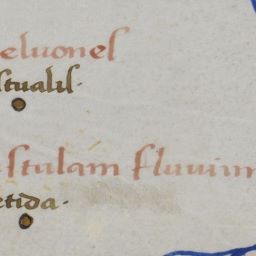 eluones
stualis.
istulam fluuium
etida.